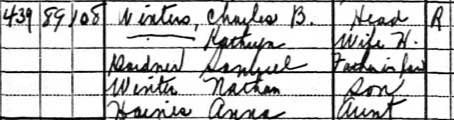 439 89 108 Winters, Charles B. Head R
Kathryn Wife H.
Gardner Samuel Father in law
Winter Nathan Son
Haines Anna Aunt